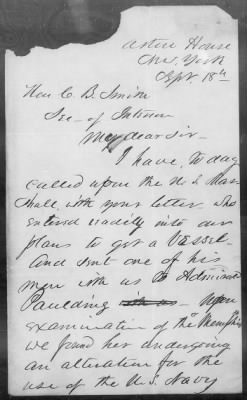 Astor House
New York
Sept. 18th
Hon C. B. Smith
Sec - of Interior
My dear Sir -
I have to day
called upon the U. S. Mar
shall with your letter who
entered readily into our
plans to get a Vessel -
And sent one of his
men with us to Admiral
Paulding - Upon
examination of the Memphis
we found her undergoing
an alteration for the
use of the U. S. Navy